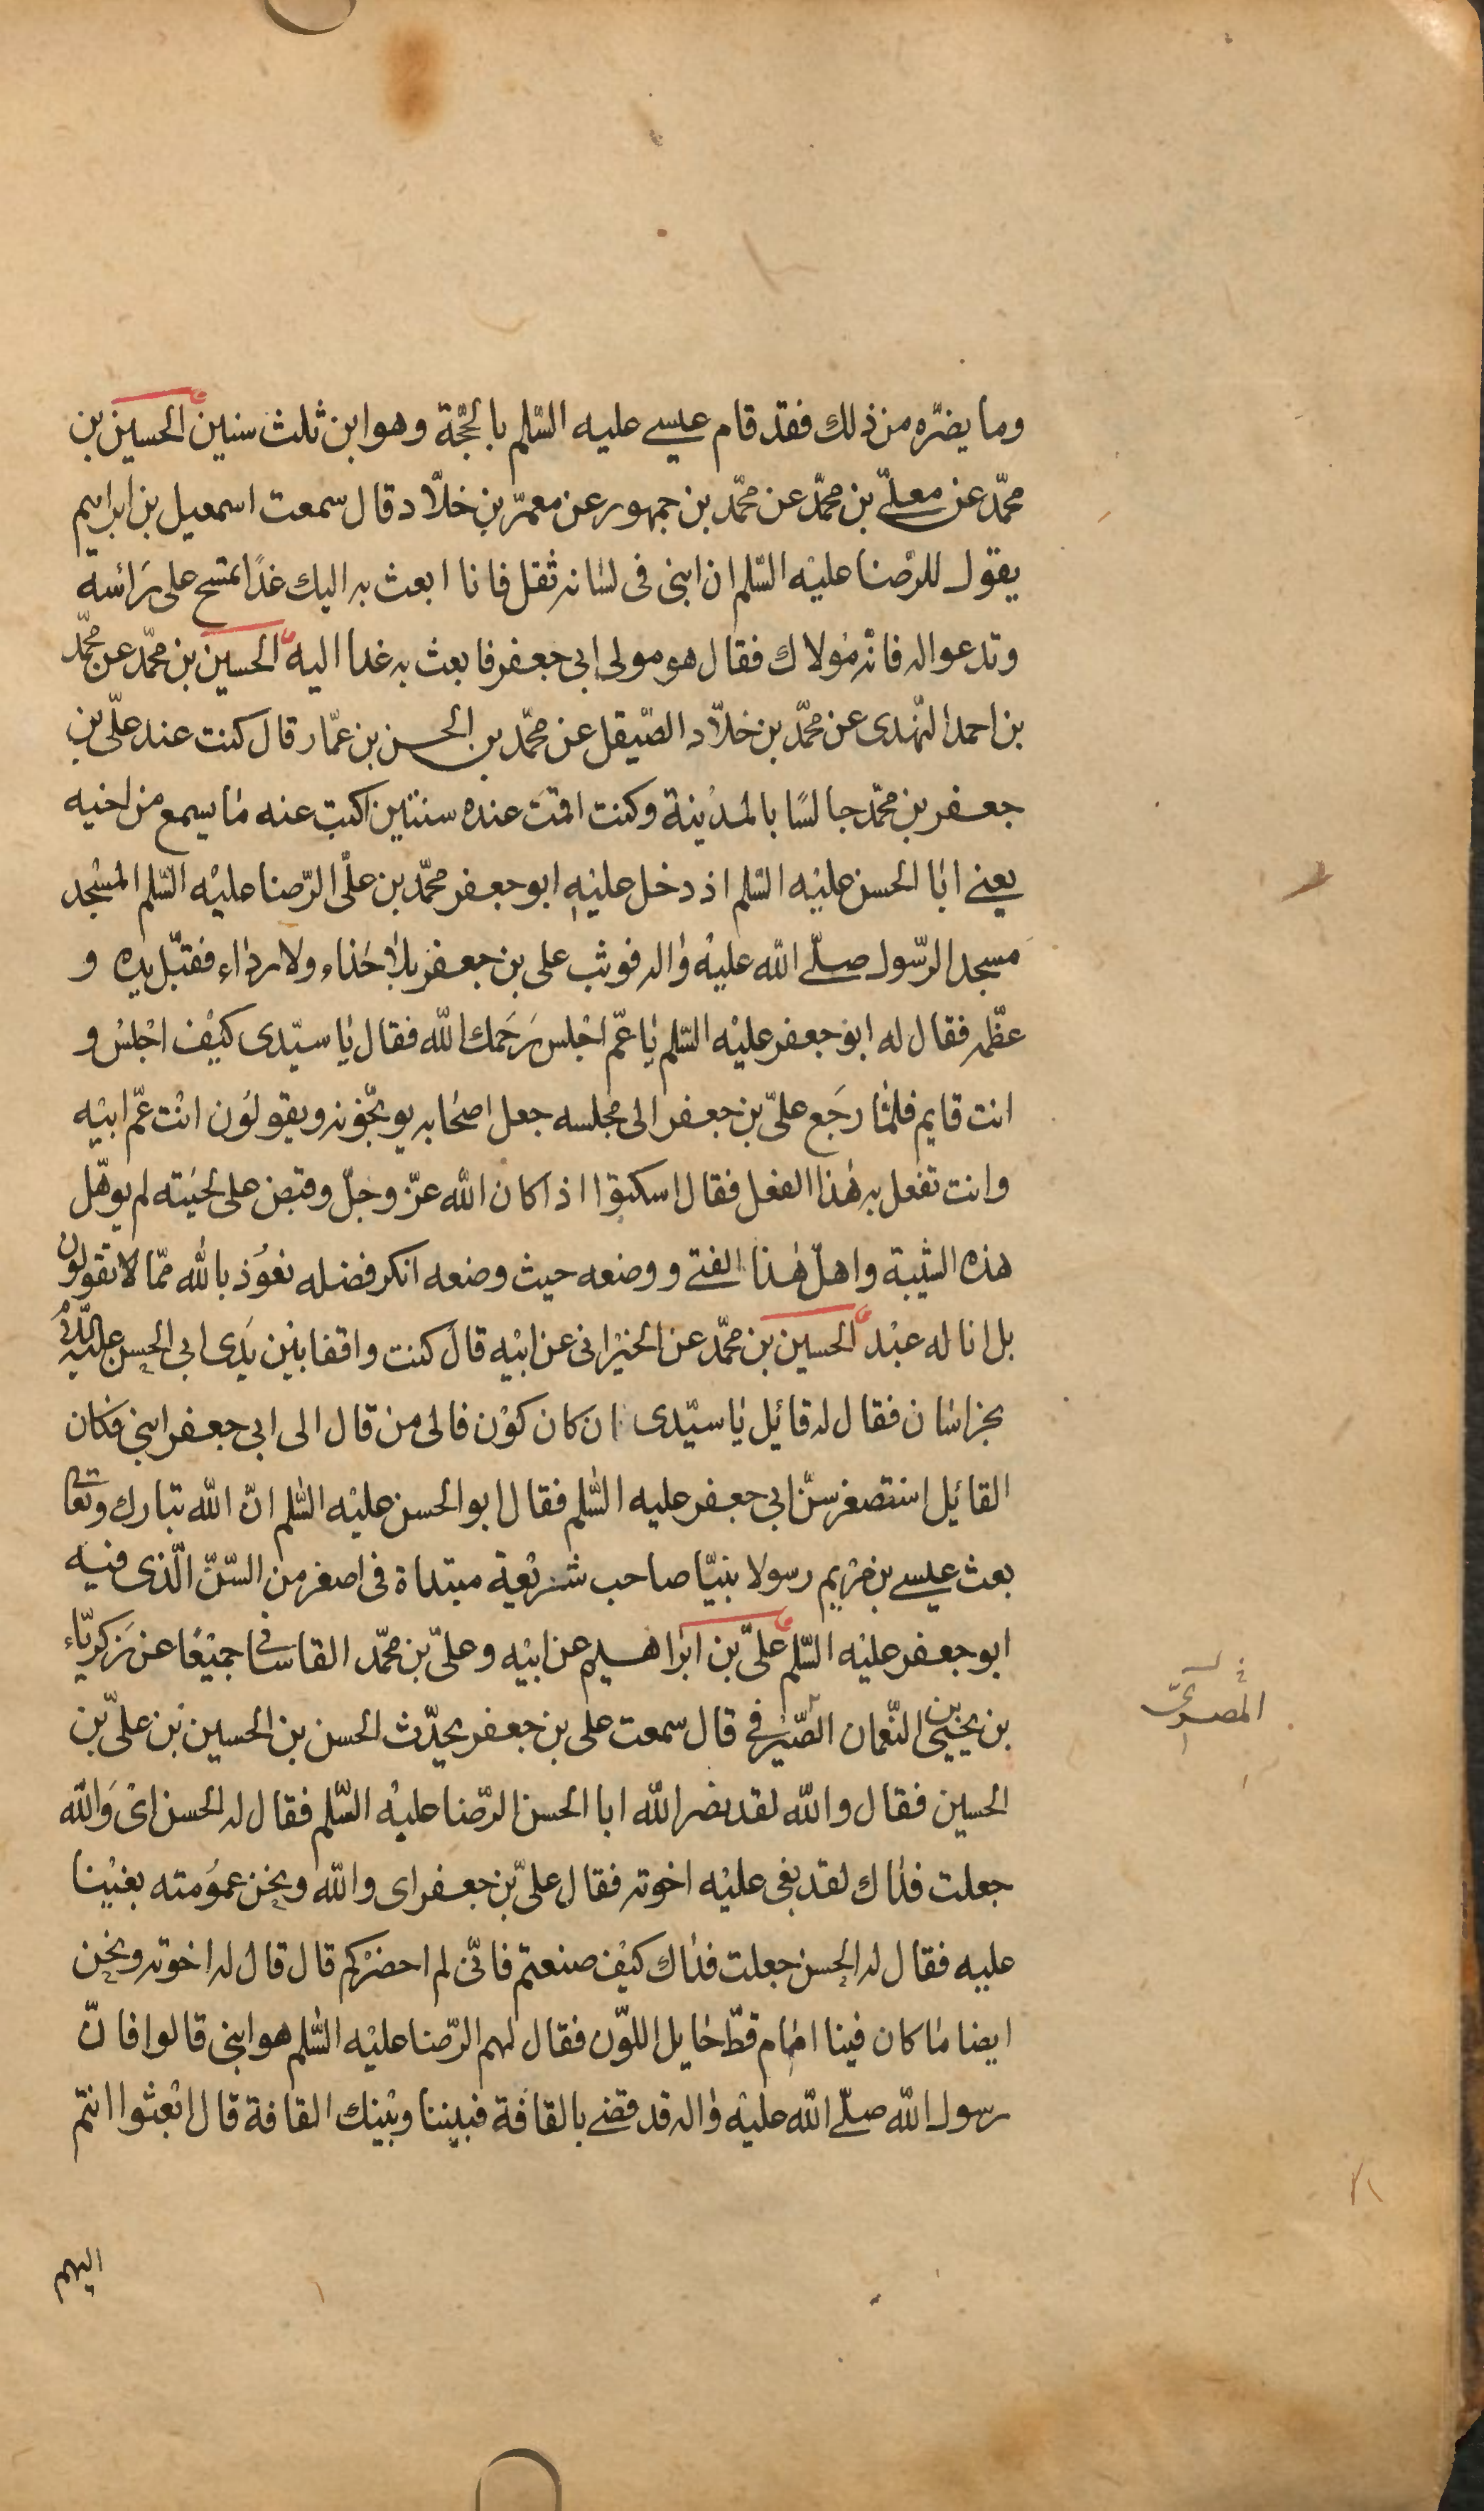 وما يضرّه من ذلك فقد قام عيسى عليه السّلم بالحجّة وهو ابن ثلث سنين الحسين بن
محمّد عن معلّى بن محمّد عن محمّد بن جمهور عن معمّر بن خلّاد قال سمعت اسمعيل بن ابراهيم
يقول للرّضا عليه السّلم ان ابنى فى لسانه ثقل فانا ابعث به اليك غدًا تمسح على رأسه
وتدعوا له فانّه مولاك فقال هو مولى ابى جعفر فابعث به غدا اليه الحسين بن محمّد عن محمّد
بن احمد النّهدى عن محمّد بن خلّاد الصّيقل عن محمّد بن الحسن بن عمّار قال كنت عند علىّ بن
جعفر بن محمّد جالسًا بالمدينة وكنت اقمت عنده سنتين اكتب عنه ما يسمع من اخيه
يعنى ابا الحسن عليه السّلم اذ دخل عليه ابو جعفر محمّد بن علىّ الرّضا عليه السّلم المسجد
مسجد الرّسول صلّى الله عليه واله فوثب على بن جعفر بلا حذاء ولا رداء فقبّل يده و
عظّمه فقال له ابو جعفر عليه السّلم يا عمّ اجلس رحمك الله فقال يا سيّدى كيف اجلس و
انت قايم فلمّا رجع علىّ بن جعفر الى مجلسه جعل اصحابه يوبّخونه ويقولون انت عمّ ابيه
وانت تفعل به هذا الفعل فقال اسكتوا اذا كان الله عزّ وجلّ وقبض على لحيته لم يوهّل
هذه الشّيبة واهلّ هذا الفتى ووضعه حيث وضعه انكر فضله نعوذ بالله ممّا لا تقولون
بل انا له عبد الحسين بن محمّد عن الخيرانى عن ابيه قال كنت واقفا بين يدى ابى الحسن عليه السّلام
بخراسان فقال له قائيل يا سيّدى ان كان كون فالى من قال الى ابى جعفر ابنى فكان
القائيل استصغر سنّ ابى جعفر عليه السّلم فقال ابو الحسن عليه السّلم انّ الله تبارك وتعالى
بعث عيسى بن مريم رسولا نبيّا صاحب شريعة مبتداة فى اصغر من السّنّ الّذى فيه
ابو جعفر عليه السّلم علىّ بن ابراهيم عن ابيه وعلىّ بن محمّد القاسانى جميعًا عن زكريّاء
بن يحيى بن النّعمان الصّيرفى قال سمعت على بن جعفر يحدّث الحسن بن الحسين بن علىّ بن
الحسين فقال والله لقد نصر الله ابا الحسن الرّضا عليه السّلم فقال له الحسن اى والله
جعلت فداك لقد بغى عليه اخوته فقال علىّ بن جعفر اى والله ونحن عمومته بغينا
عليه فقال له الحسن جعلت فداك كيف صنعتم فانّى لم احضركم قال قال له اخوته ونحن
ايضا ما كان فينا امام قطّ حايل اللّون فقال لهم الرّضا عليه السّلم هو ابنى قالوا فانّ
رسول الله صلّى الله عليه واله قد قضى بالقافة فبيننا وبينك القافة قال ابعثوا انتم
اليهم
المصرىّ